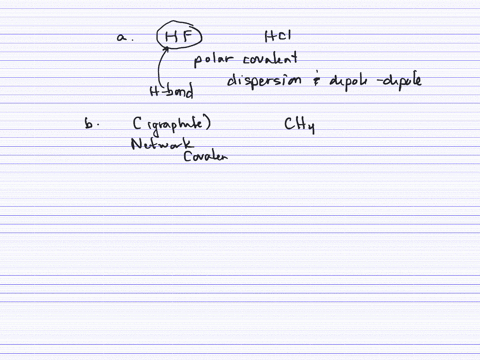 a. HF HCl
polar covalent
dispersion & dipole-dipole
H-bond
b. C (graphite) CH4
Network
Covalen